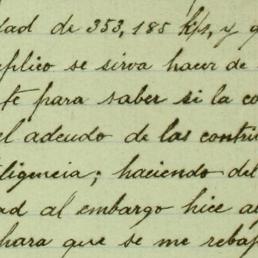 dad de 353,185 k/s, y q
plico se sirva hacer de
te para saber si la co
el adeudo de las contri
ligencia; haciendo del
ad al embargo hice a
hara que se me reba